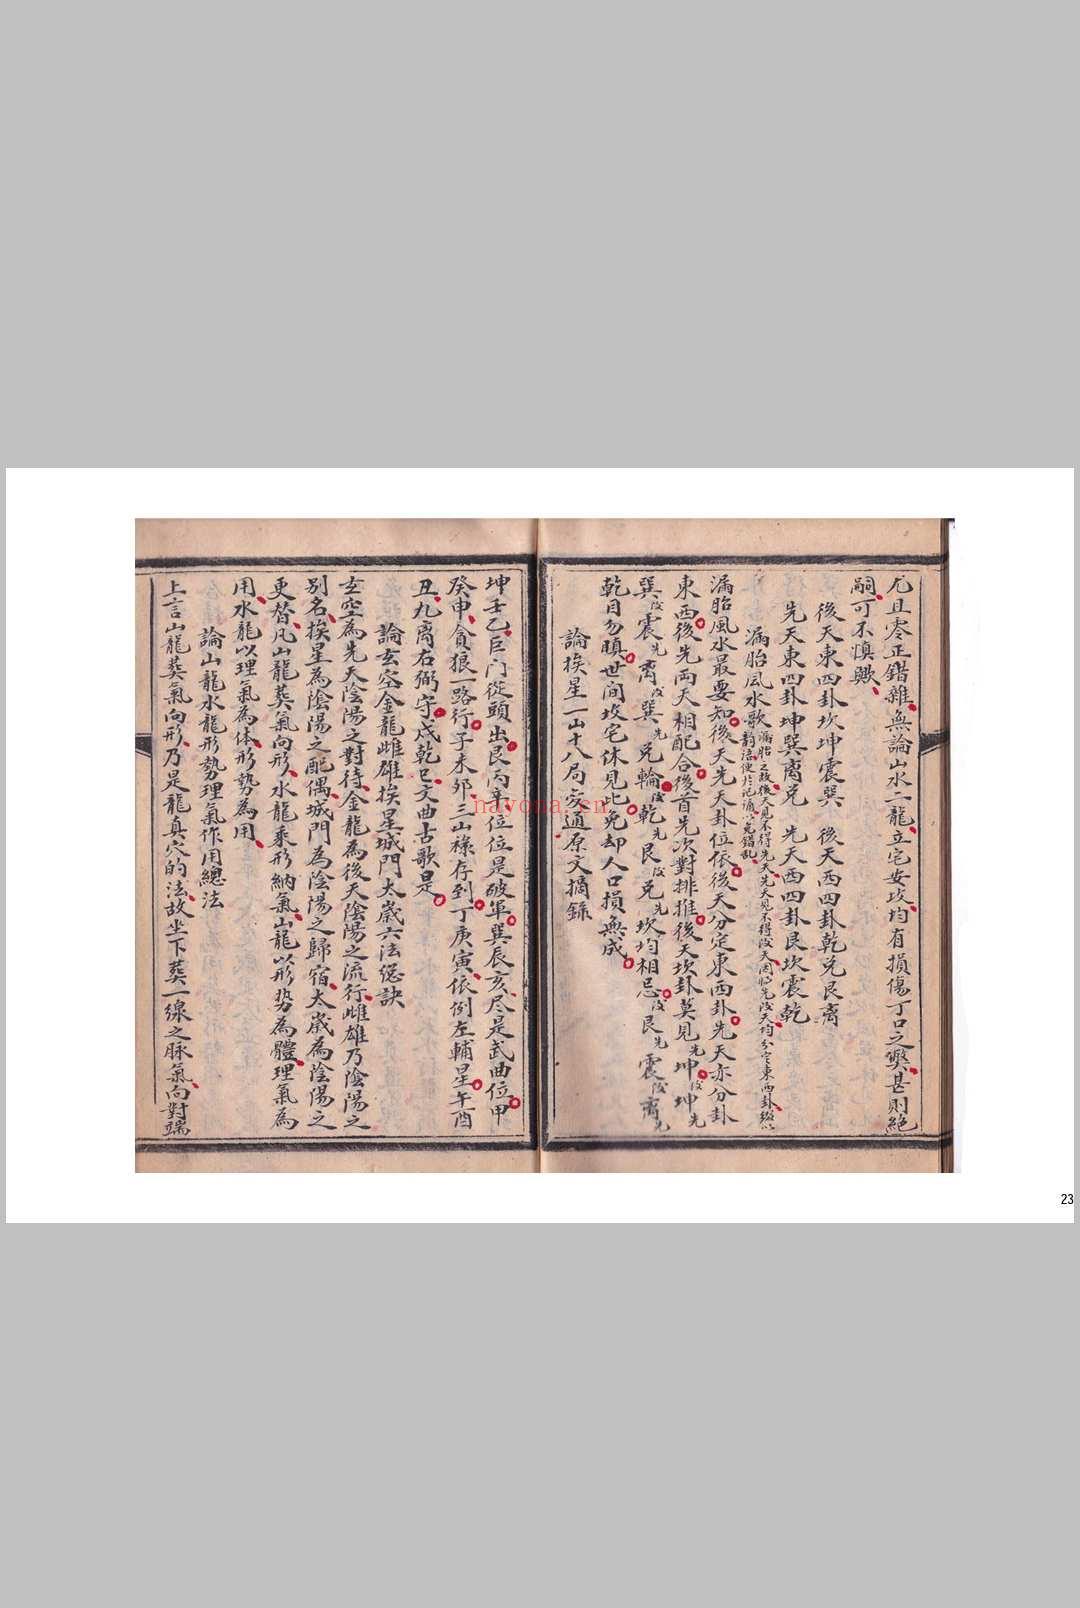 尤且零正錯雜無論山水二龍立宅安坟均有損傷丁口之獘甚則絕
嗣可不慎歟
後天東四卦坎坤震巽 後天西四卦乾兌艮离
先天東四卦坤巽离兌 先天西四卦艮坎震乾
漏胎風水歌
漏胎之故後天見不得先天先天見不得後天因临先後天均分定東西卦
韵語便於記誦以免錯乱
漏胎風水最要知後天先天卦位依後天分定東西卦先天亦分卦
東西後先両天相配合後首先次對排推後天坎卦莫見先坤後坤先
巽後震先离後巽先兌輪後乾先艮後兌先坎均相忌後艮先震後离先
乾目勿瞋世间坟宅休見此免却人口損無成
論挨星一山十八局宗通原文摘錄
坤壬乙巨门從頭出艮丙辛位位是破軍巽辰亥尽是武曲位甲
癸申貪狼一路行子未卯三山祿存到丁庚寅依例左輔星午酉
丑九离右弼守戌乾巳文曲古歌是
論玄空金龍雌雄挨星城門太歲六法總訣
玄空為先天陰陽之對待金龍為後天陰陽之流行雌雄乃陰陽之
别名挨星為陰陽之配偶城門為陰陽之歸宿太歲為陰陽之
更替凡山龍葬氣向形水龍乘形納氣山龍以形势為體理氣為
用水龍以理氣為体形勢為用
論山龍水龍形勢理氣作用總法
上言山龍葬氣向形乃是龍真穴的法故坐下葬一線之脉氣向對端
nayona.cn
23